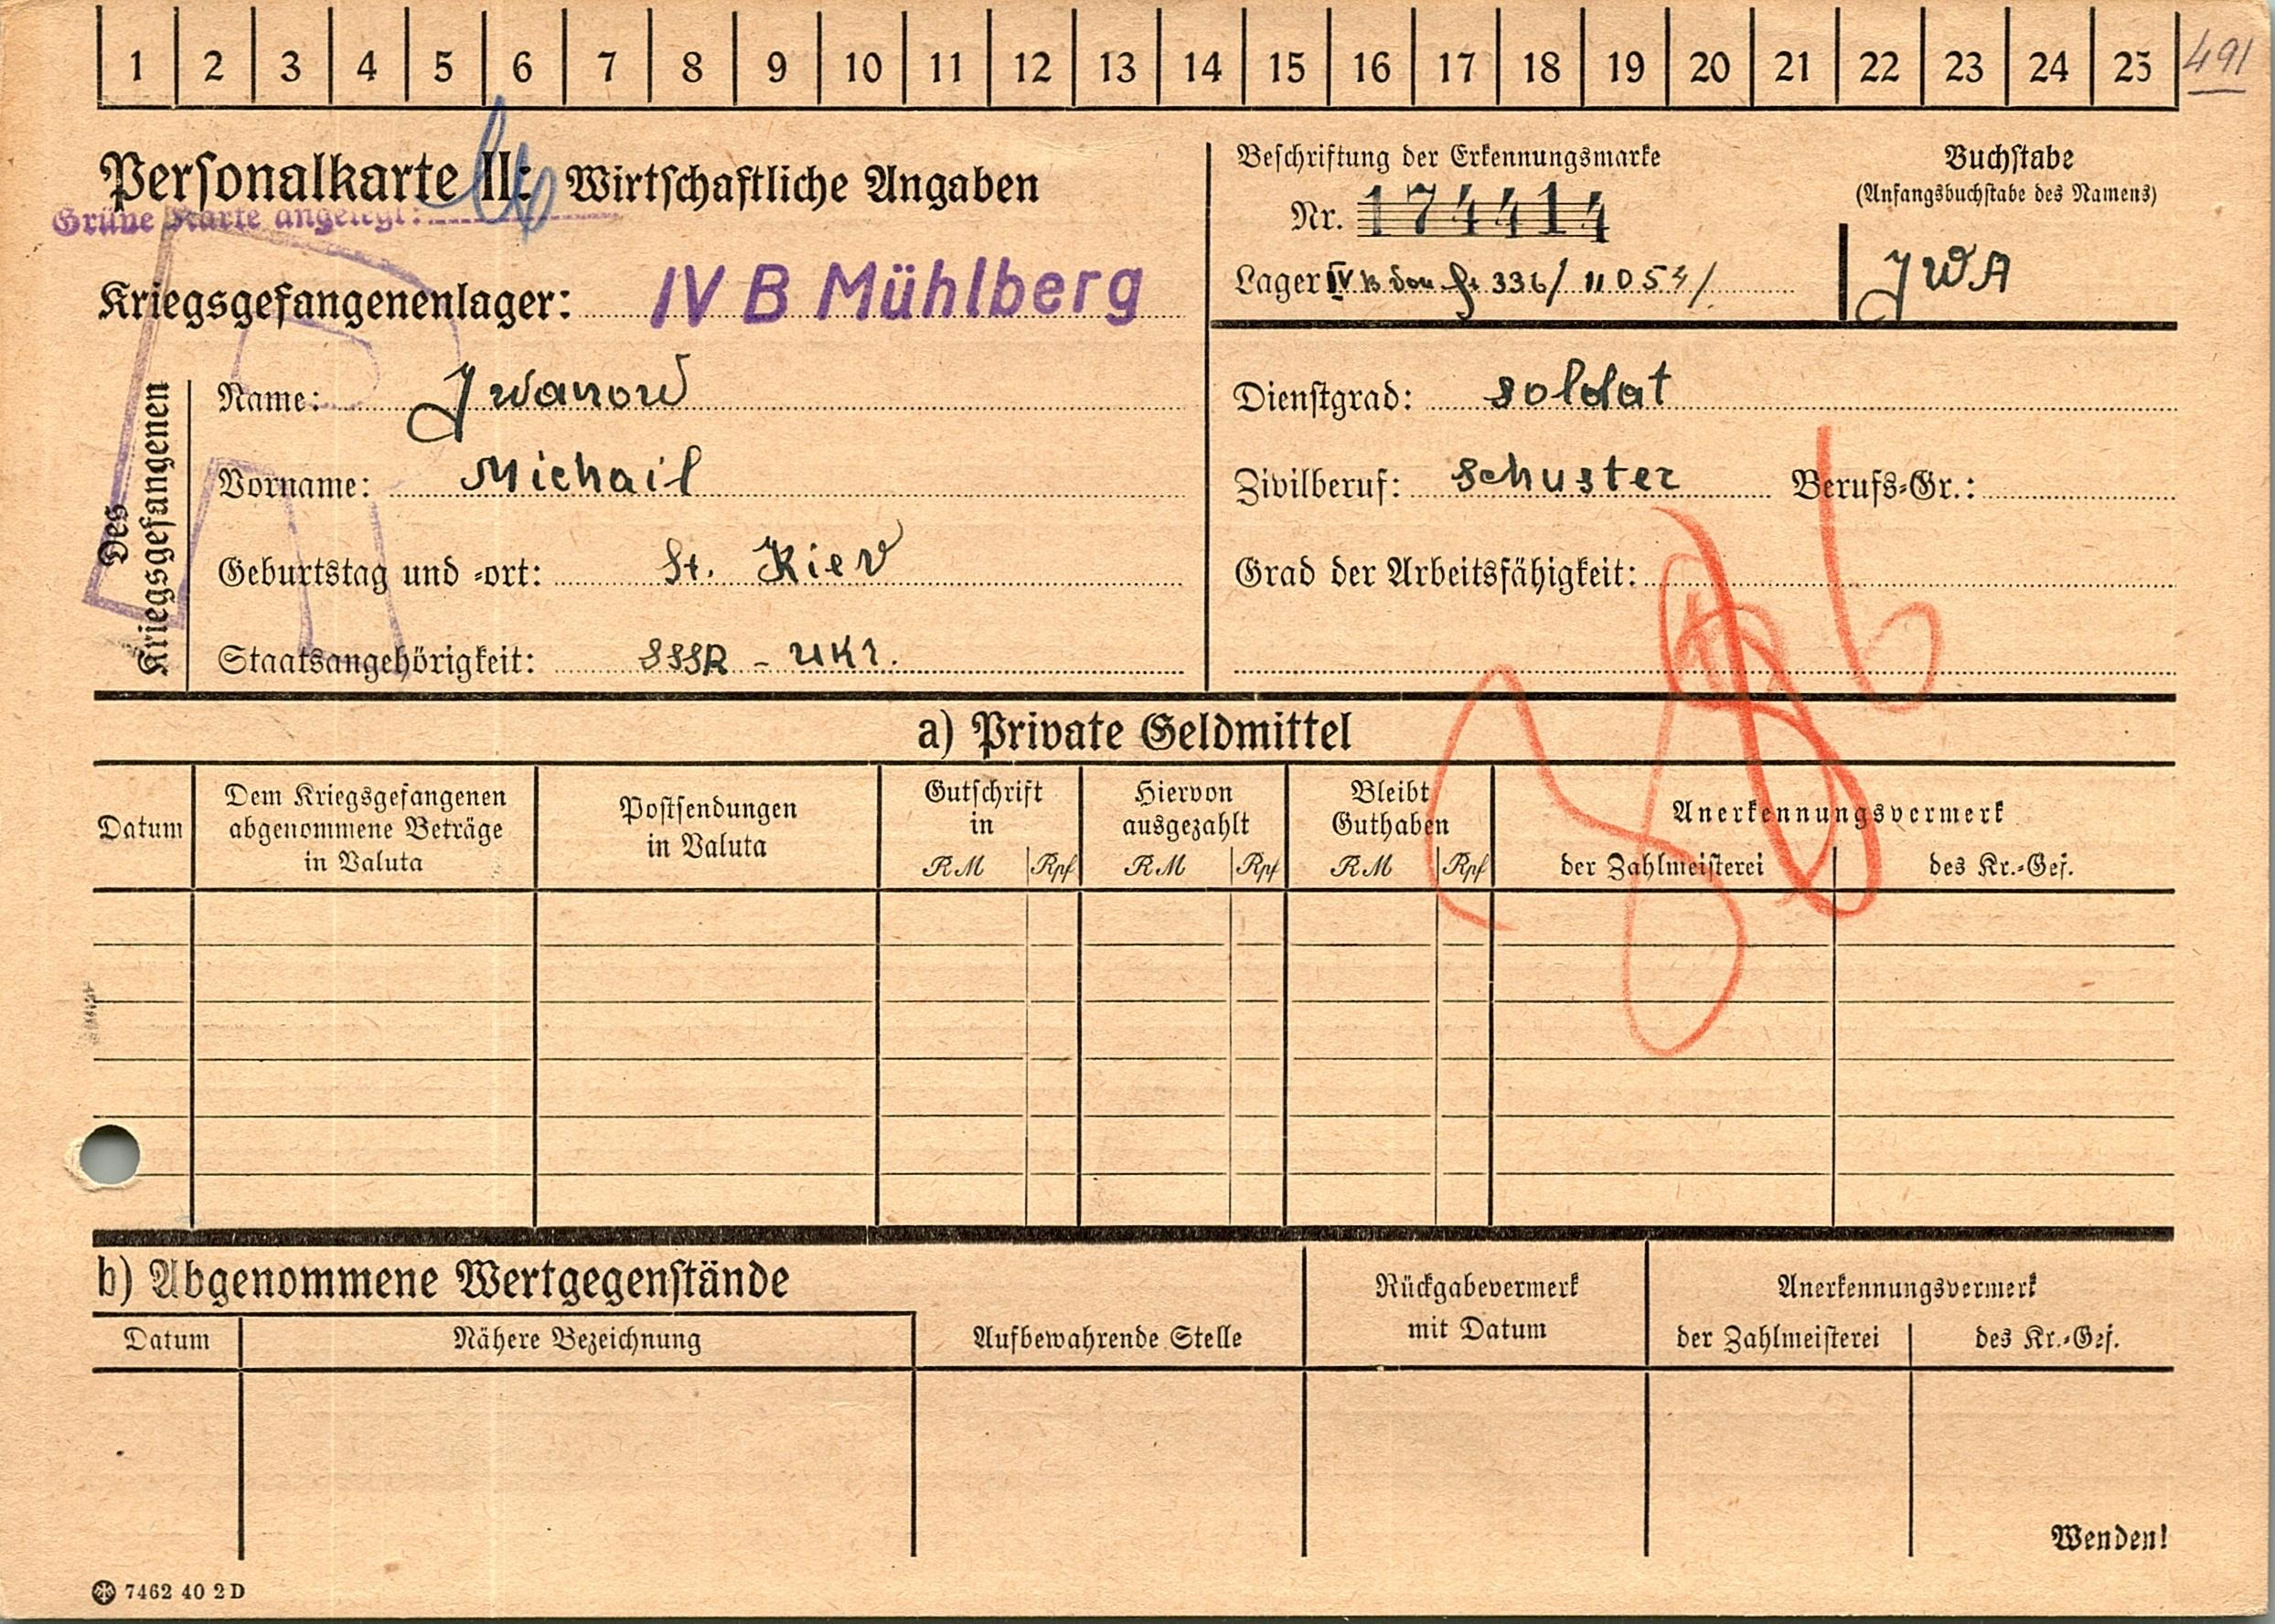 1 2 3 4 5 6 7 8 9 10 11 12 13 14 15 16 17 18 19 20 21 22 23 24 25 491
Personalkarte II: Wirtschaftliche Angaben
Grüne Karte angelegt:
Kriegsgefangenenlager: IV B Mühlberg
Beschriftung der Erkennungsmarke
Nr. 174414
Lager IV B von 336/ 11054/
Buchstabe
(Anfangsbuchstabe des Namens)
JWA
Des Kriegsgefangenen
Name: Jwanow
Vorname: Michail
Geburtstag und -ort: St. Kiev
Staatsangehörigkeit: SSSR - UKr.
Dienstgrad: soldat
Zivilberuf: schuster Berufs-Gr.:
Grad der Arbeitsfähigkeit:
a) Private Geldmittel
Datum
Dem Kriegsgefangenen
abgenommene Beträge
in Valuta
Postsendungen
in Valuta
Gutschrift
in
RM Rpf
Hiervon
ausgezahlt
RM Rpf
Bleibt
Guthaben
RM Rpf
Anerkennungsvermerk
der Zahlmeisterei des Kr.-Gef.
b) Abgenommene Wertgegenstände
Datum Nähere Bezeichnung
Aufbewahrende Stelle
Rückgabevermerk
mit Datum
Anerkennungsvermerk
der Zahlmeisterei des Kr.-Gef.
Wenden!
7462 40 2D